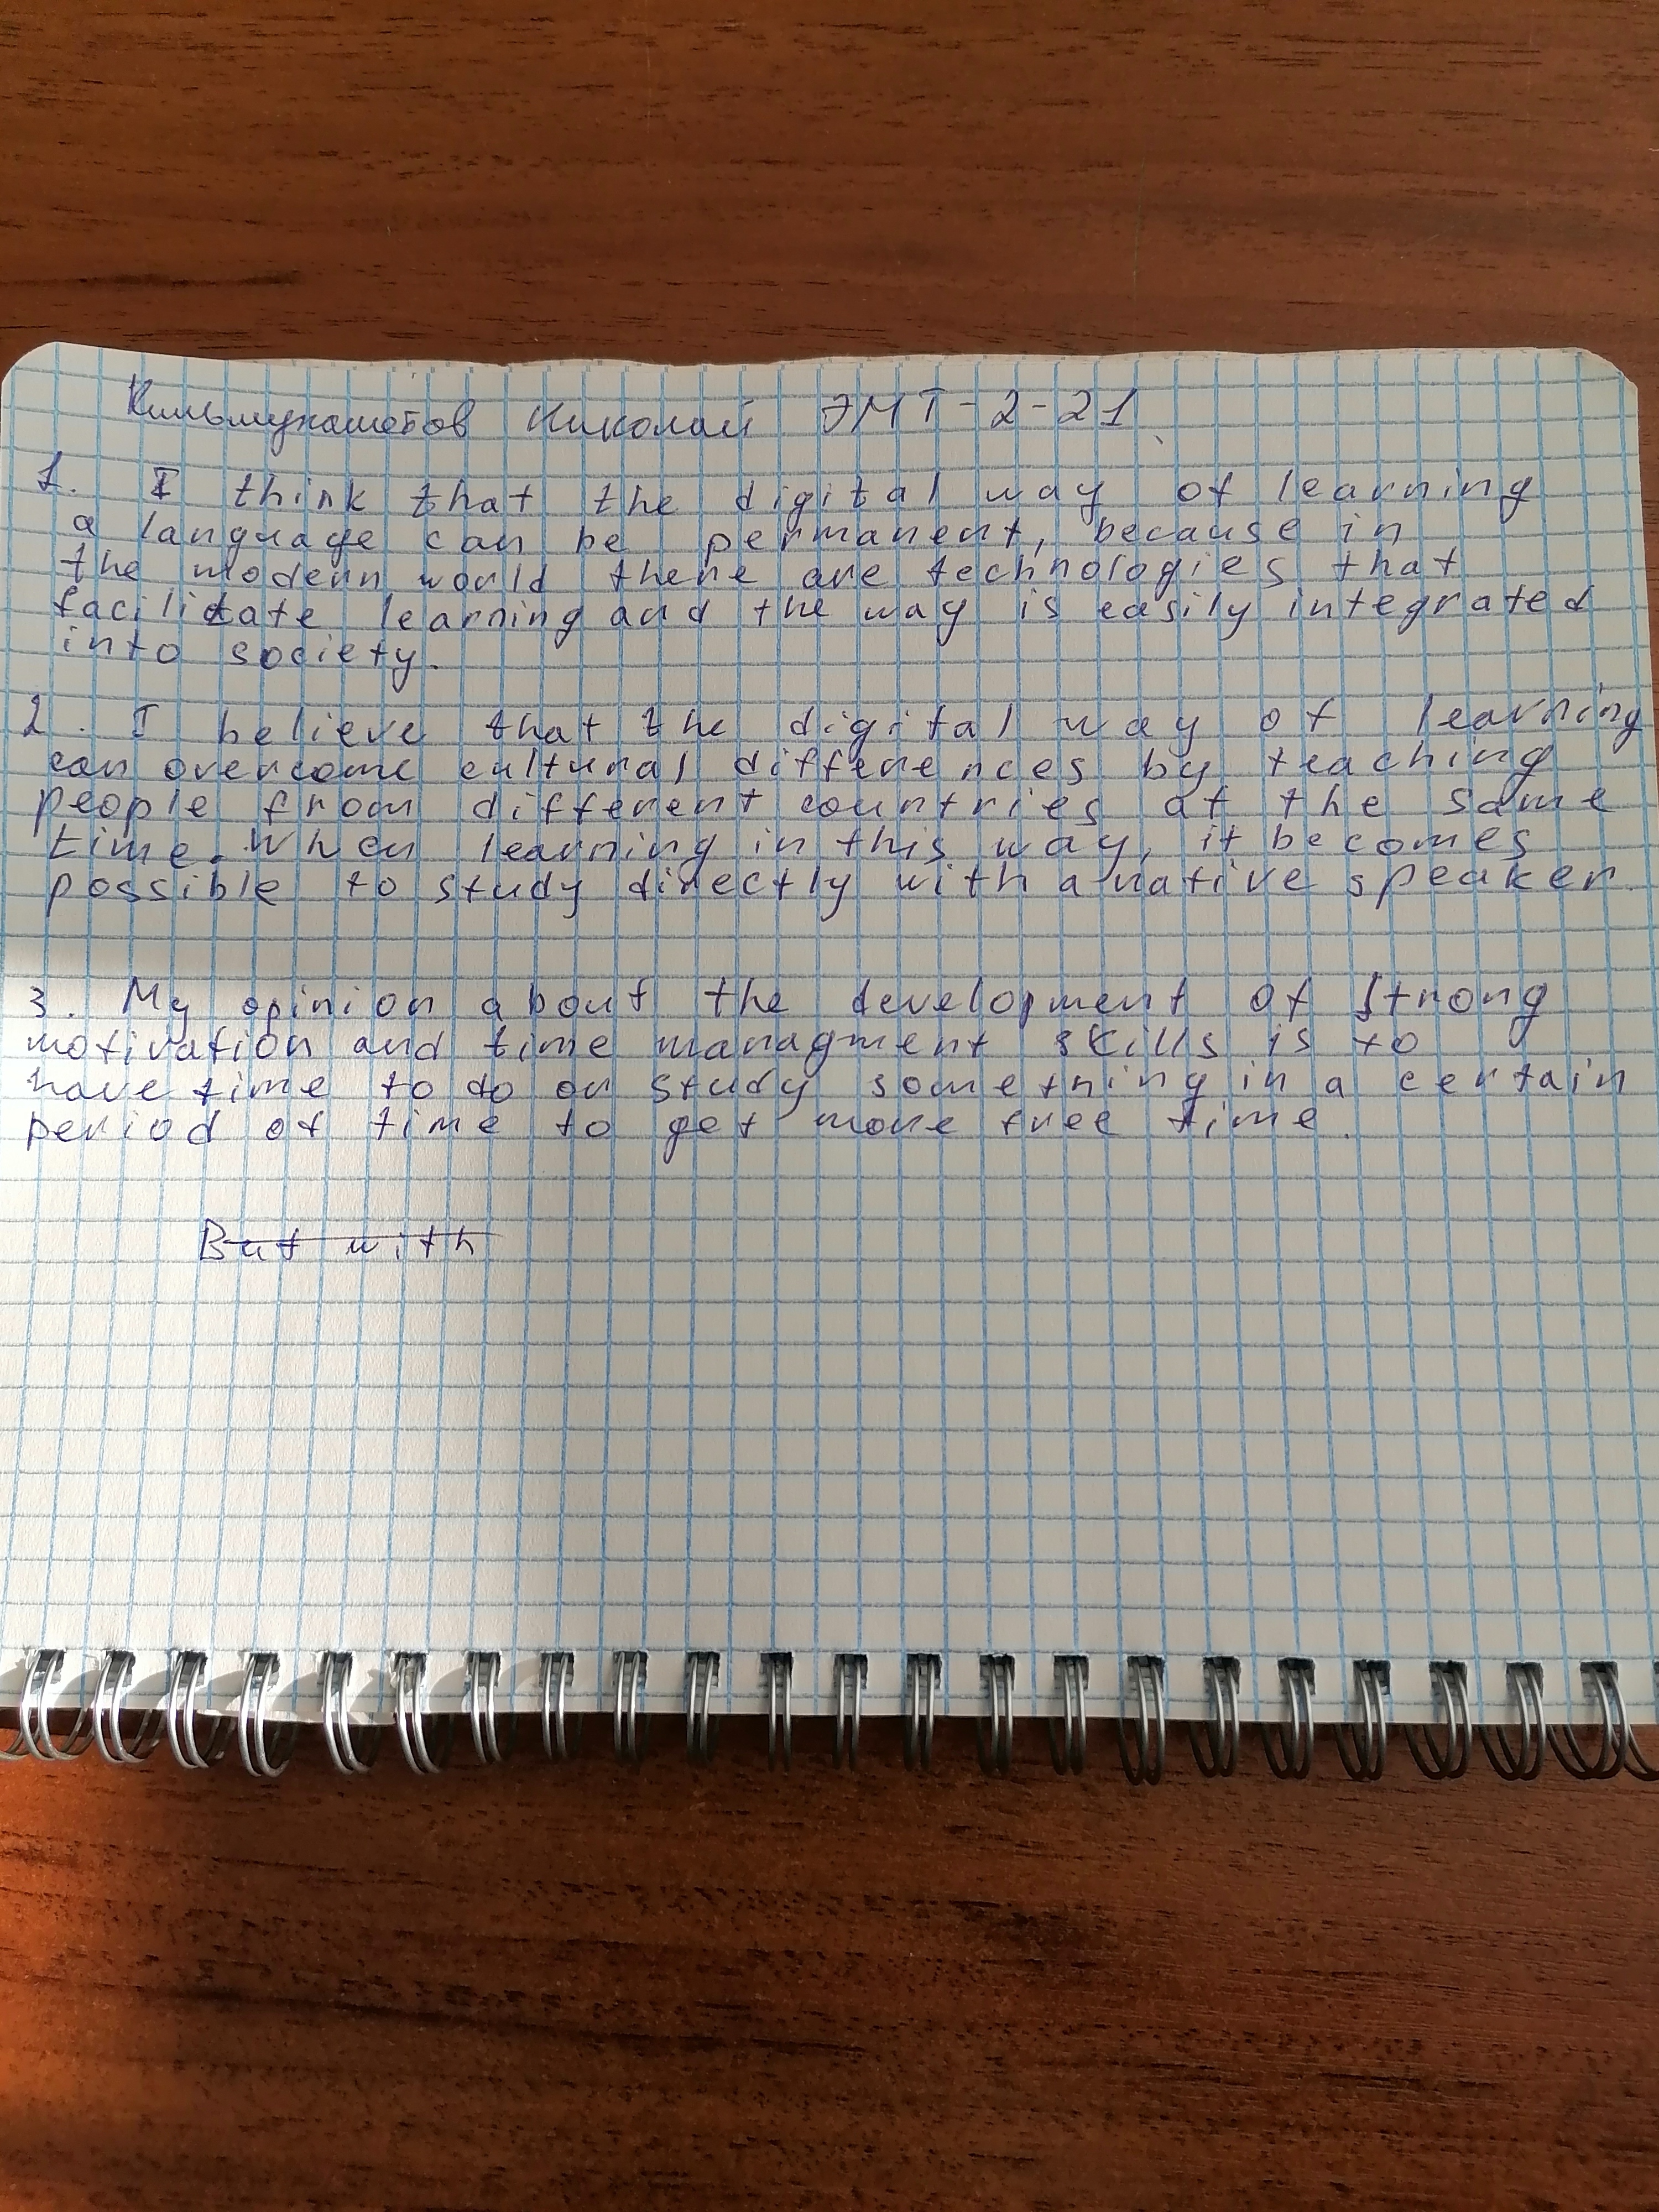 Кильмухаметов Николай ЭМТ-2-21
1. I think that the digital way of learning
a language can be permanent, because in
the modern world there are technologies that
facilitate learning and the way is easily integrated
into society.
2. I believe that the digital way of learning
can overcome cultural differences by teaching
people from different countries at the same
time. When learning in this way, it becomes
possible to study directly with a native speaker.
3. My opinion about the development of strong
motivation and time managment skills is to
have time to do or study something in a certain
period of time to get more free time.
But with